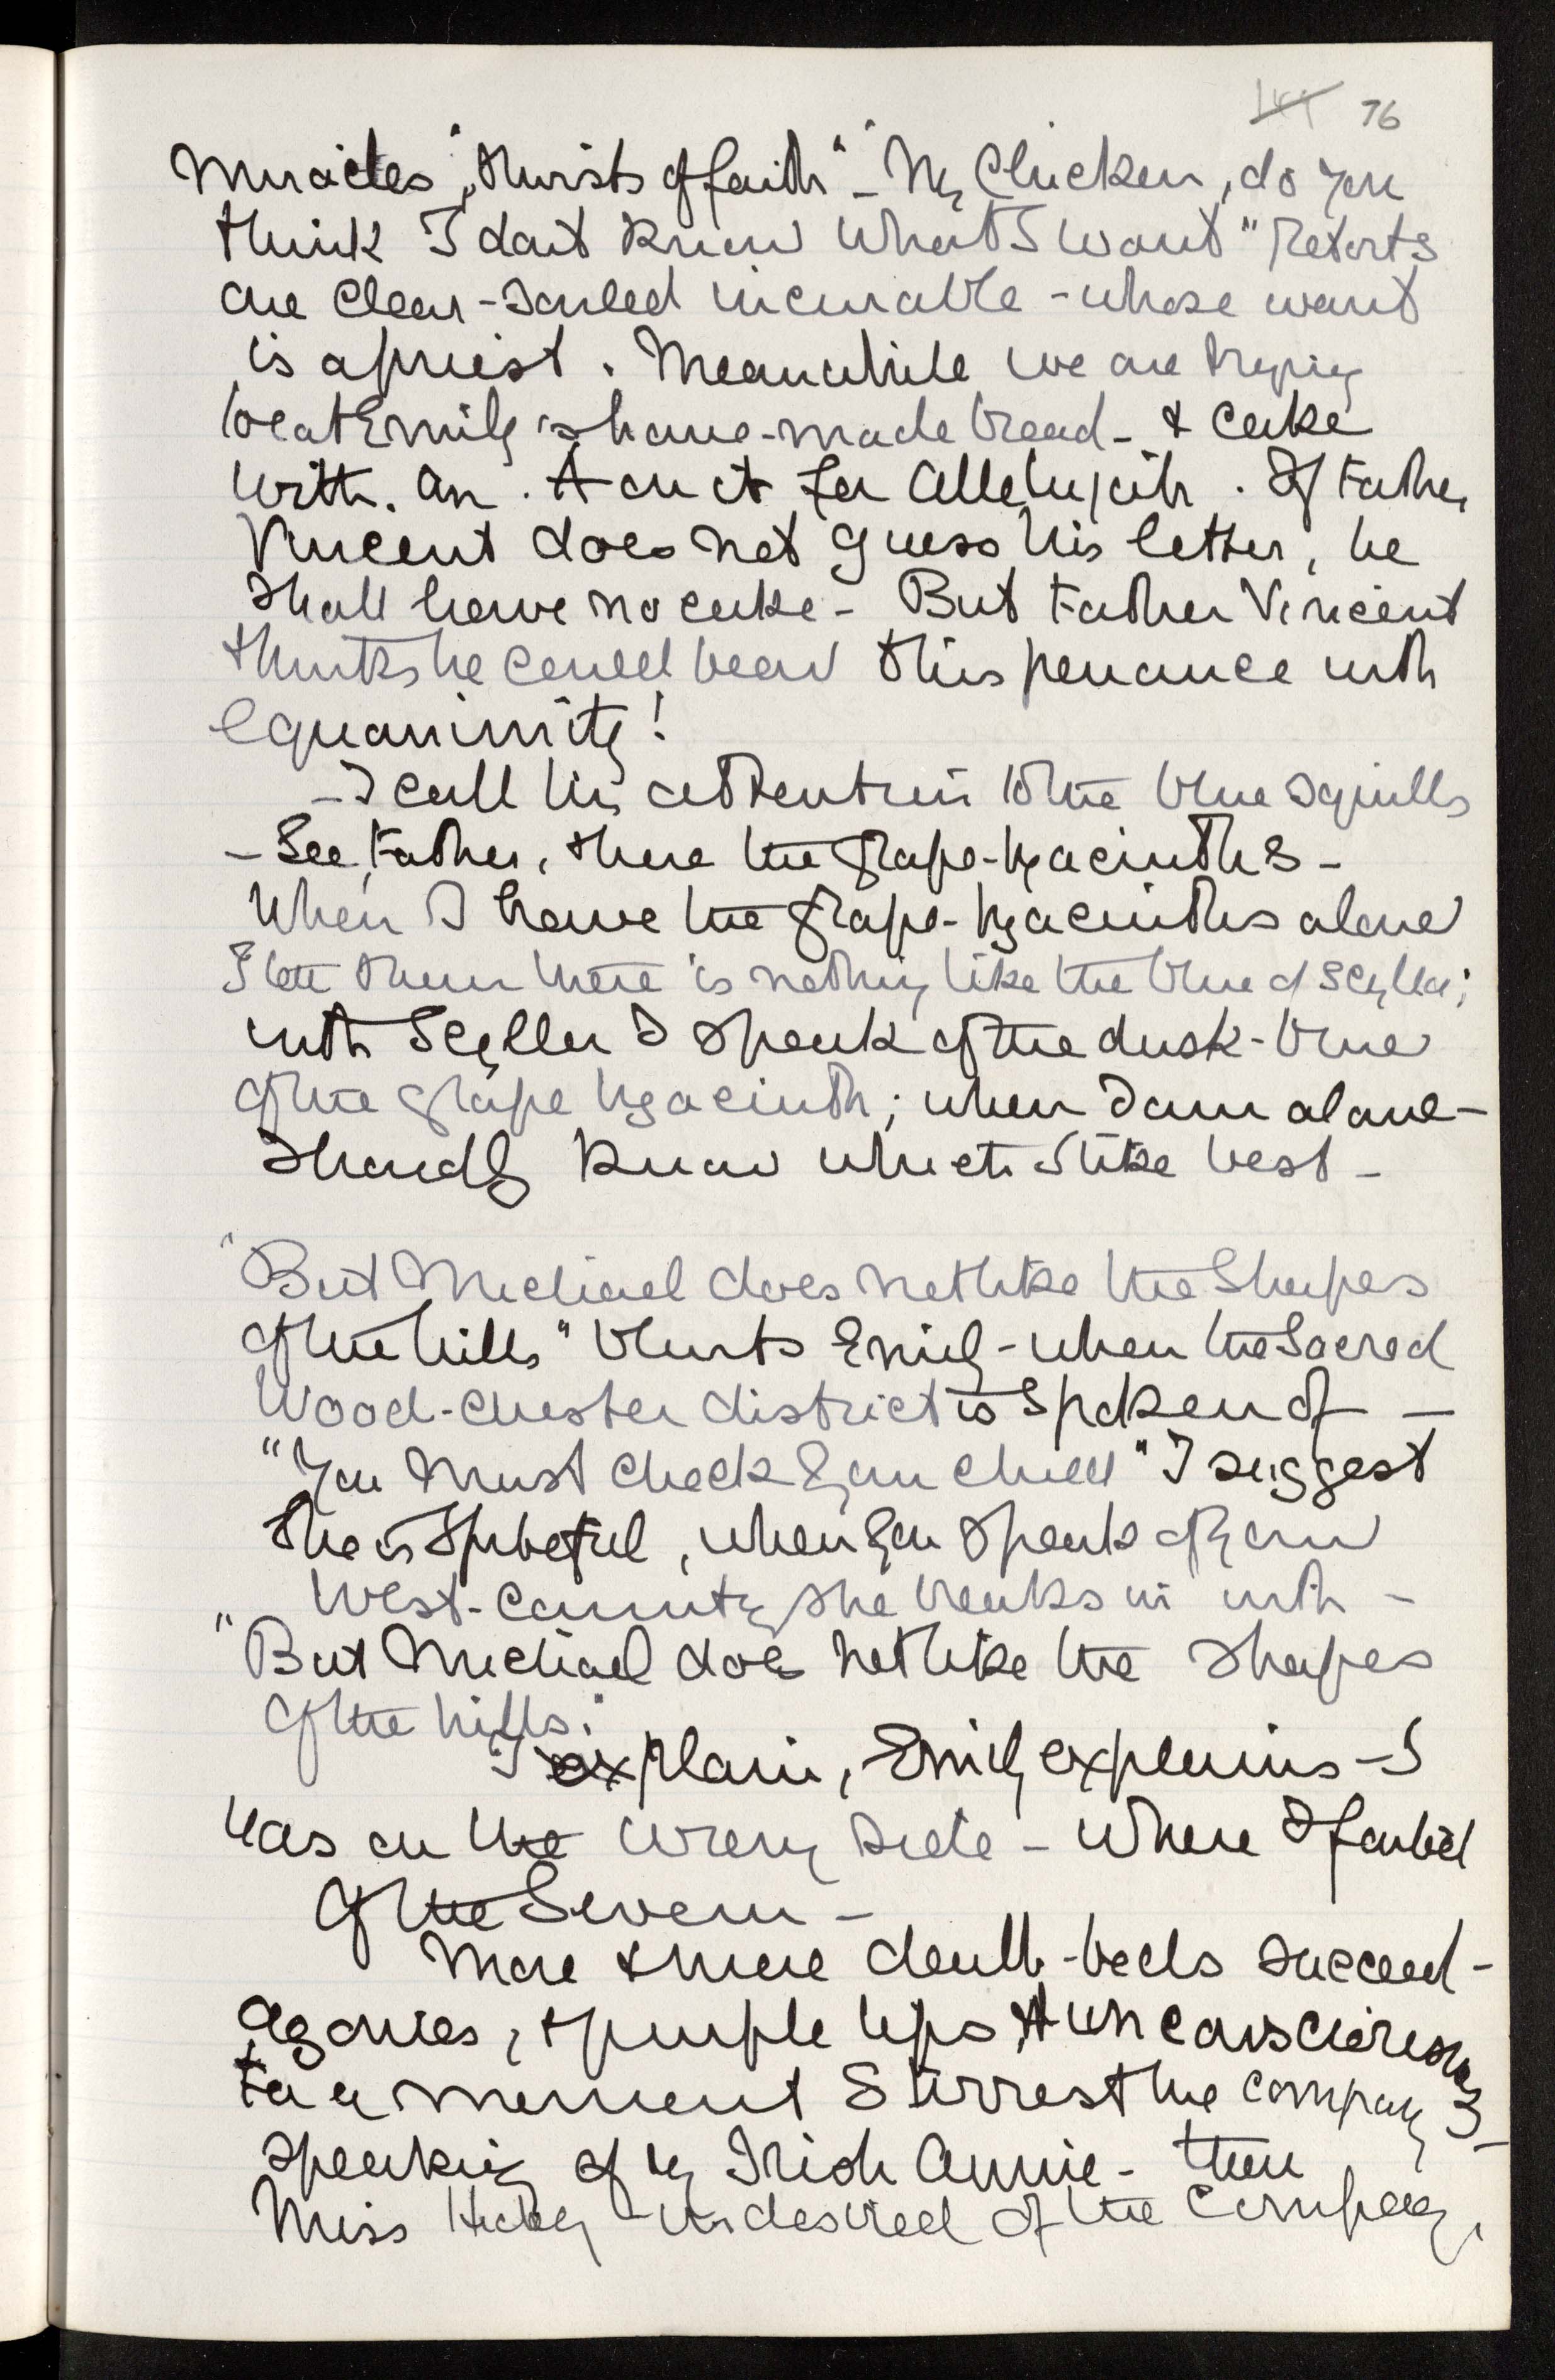 76
Miracles, "thirsts of faith" - "My Chicken, do you
think I don't know what I want" retorts
one clear-souled incurable - whose want
is a priest. Meanwhile we are trying
to eat Emily's home-made bread - & cake
with. an. A on it for Allelujah. If Father
Vincent does not guess his letter, he
shall have no cake - But Father Vincent
thinks he could bear this penance with
equanimity!
- I call his attention to the blue squills
- See, Father, there the grape-hyacinths -
When I have the grape-hyacinths alone
I then there is nothing like the blue of Scylla;
with Scylla I speak of the dusk-blue
of the grape hyacinth; when I am alone -
I hardly know which I like best -
"But Michael does not like the Shapes
of the hills" blurts Emily - when the Sacred
Wood-chester district is spoken of -
"You must check your child" I suggest
she is spiteful, when you speak of your
West-country she breaks in with -
"But Michael does not like the shapes
of the hills."
I explain, Emily explains - I
was on the wrong side - where I
of the Severn -
More & more death-beds succeed -
agonies, & purple lips & unconsciousness
For a moment I arrest the company
speaking of my Irish Annie - then
Miss undesired of the Company,